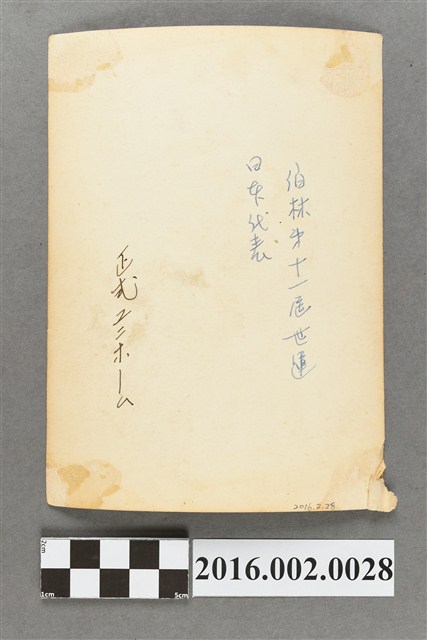 伯林第十一届世運
日本代表
正式ユニホーム
2016.2.28
2cm
1cm
5cm
2016.002.0028